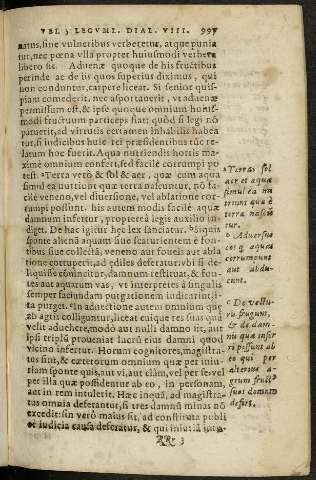 VEL 3 LEGVML. DIAL. VIII. 997
natus, sine vulneribus verberetur, atque punia
tur, nec pœna vlla propter huiusmodi verbera
libero sit. Aduenæ quoque de his fructibus
perinde ac de iis quos superius diximus, qui
non conduntur, carpere liceat. Si senior quis-
piam comederit, nec asportauerit, vt aduenæ
permissum est, & ipse quoque omnium huius-
modi fructuum particeps fiat: quòd si legi nõ
paruerit, ad virtutis certamen inhabilis habea
tur, si iudicibus huic rei præsidentibus tũc re-
latum hoc fuerit. Aqua nutriendis hortis ma-
ximè omnium confert, sed facilè corrumpi po
test. Terra verò & sol & aer, quæ cum aqua
simul ea nutriunt quæ terra nascuntur, nõ fa-
cilè veneno, vel diuersione, vel ablatione cor-
rumpi possunt: his autem modis facilè aquæ
damnum infertur, propterea legis auxilio in-
diget. De hac igitur hęc lex sanciatur. Si quis
sponte alienã aquam siue scaturientem è fon-
tibus siue collectã, veneno aut fouea aut abla
tione corruperit, ad ædiles deferatur: vbi is de-
liquisse conuincitur, damnum restituat, & fon-
tes aut aquarum vas, vt interpretes à singulis
semper faciundum purgationem iudicarint, i-
ta purget. In aduectione autem omnium quæ
ab agris colliguntur, liceat cuique res suas qua
velit aduehere, modò aut nulli damno sit, aut
ipsi triplũ proueniat lucrũ eius damni quod
vicino infertur. Horum cognitores, magistra-
tus sint, & cæterorum omnium quæ per iniu-
riam sponte quis, aut vi, aut clàm, vel per se vel
per illa quæ possidentur ab eo, in personam,
aut in rem intulerit. Hæc inquã, ad magistra-
tus omnia deferantur, si tres damnũ minas nõ
excedit: sin verò maius sit, ad constituta publi
cè iudicia causa deferatur, & qui iniuriã intu-
RRr 3
Terra, sol
aer et aqua
simul ea nu
triunt quæ è
terra nascũ
tur.
Aduersus
eos q aquas
corrumpunt
aut abdu-
cunt.
De vectu-
ris frugum,
& de dam-
nis quæ infer
ri possunt ab
eo qui per
alterius a-
grum fruct'
suos domum
defert.